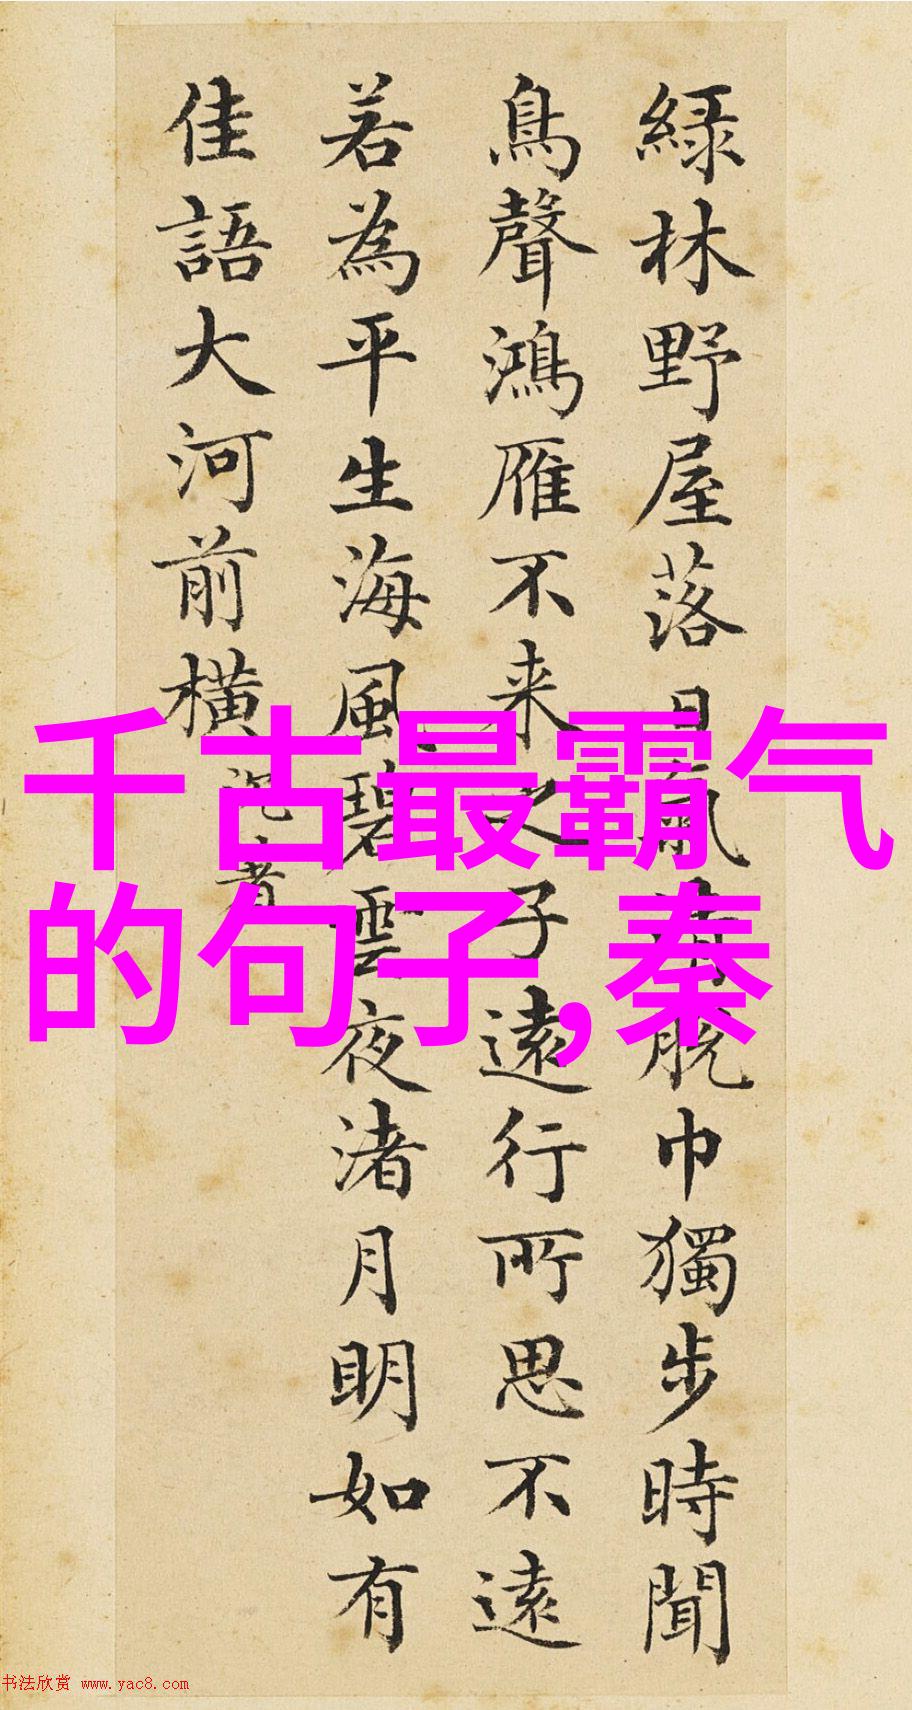 緑林野屋落日氣清脫巾獨步時聞
鳥聲鴻雁不来之子遠行所思不遠
若為平生海風碧雲夜渚月明如有
佳語大河前橫
千古最霸气
的句子,秦
书法欣赏 www.yac8.com